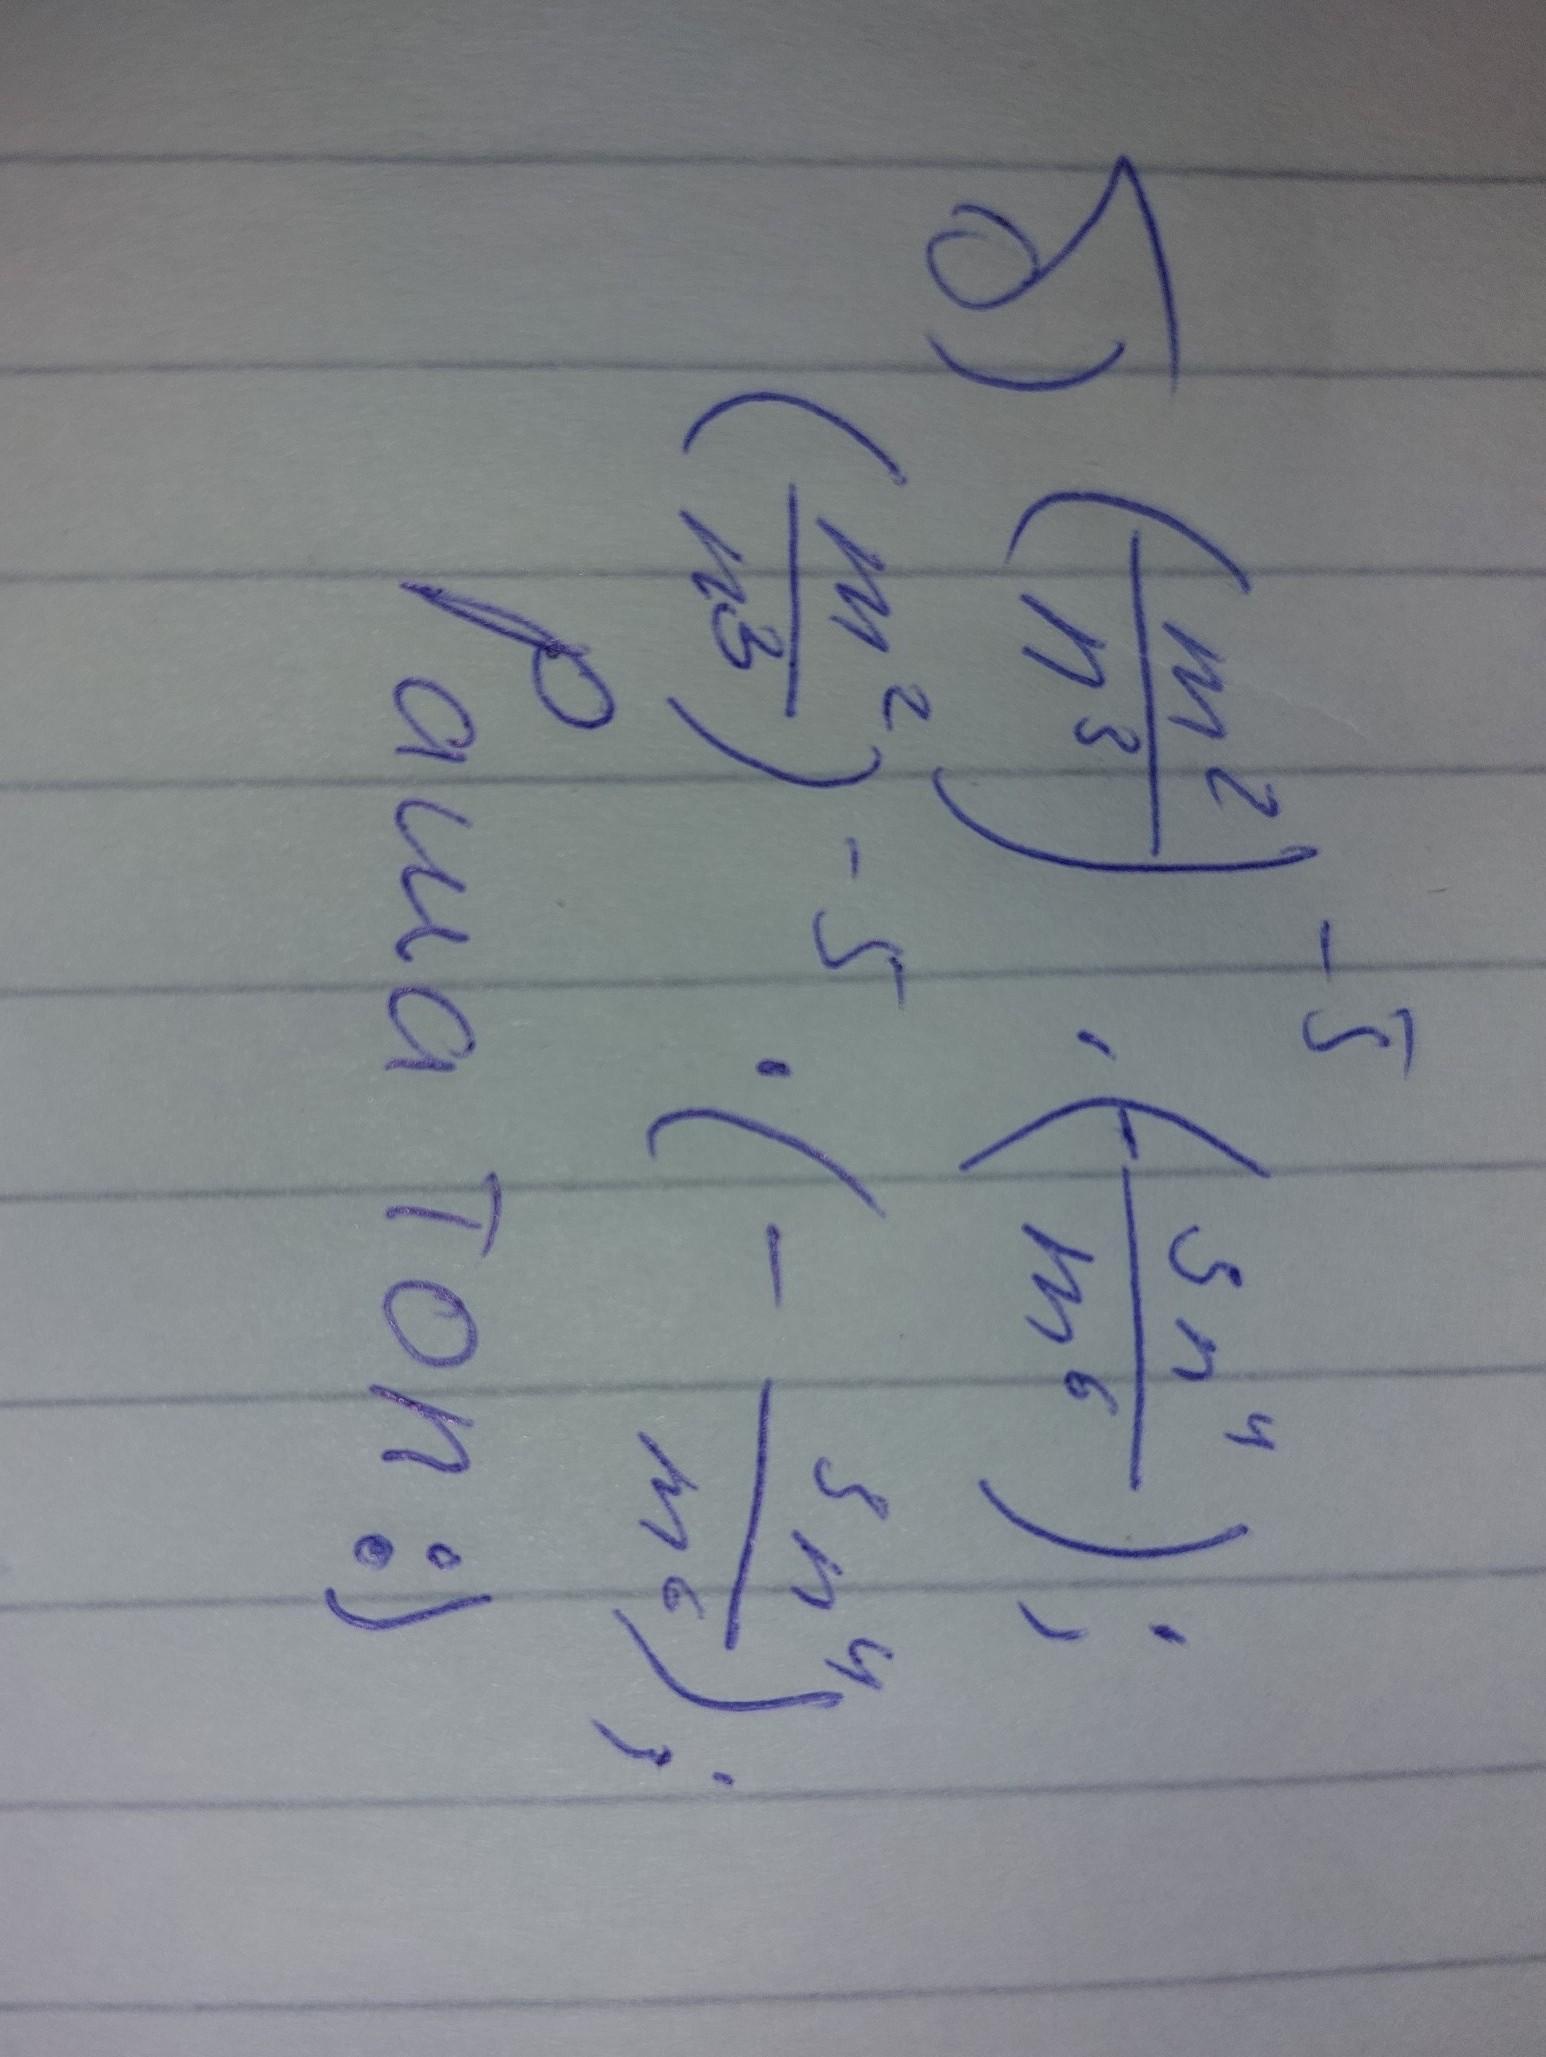 б) (m²/n³)⁻⁵ · (-5n⁴/m⁶);
(m²/n³)⁻⁵ · (- 5n⁴/m⁶);
Раша топ :)